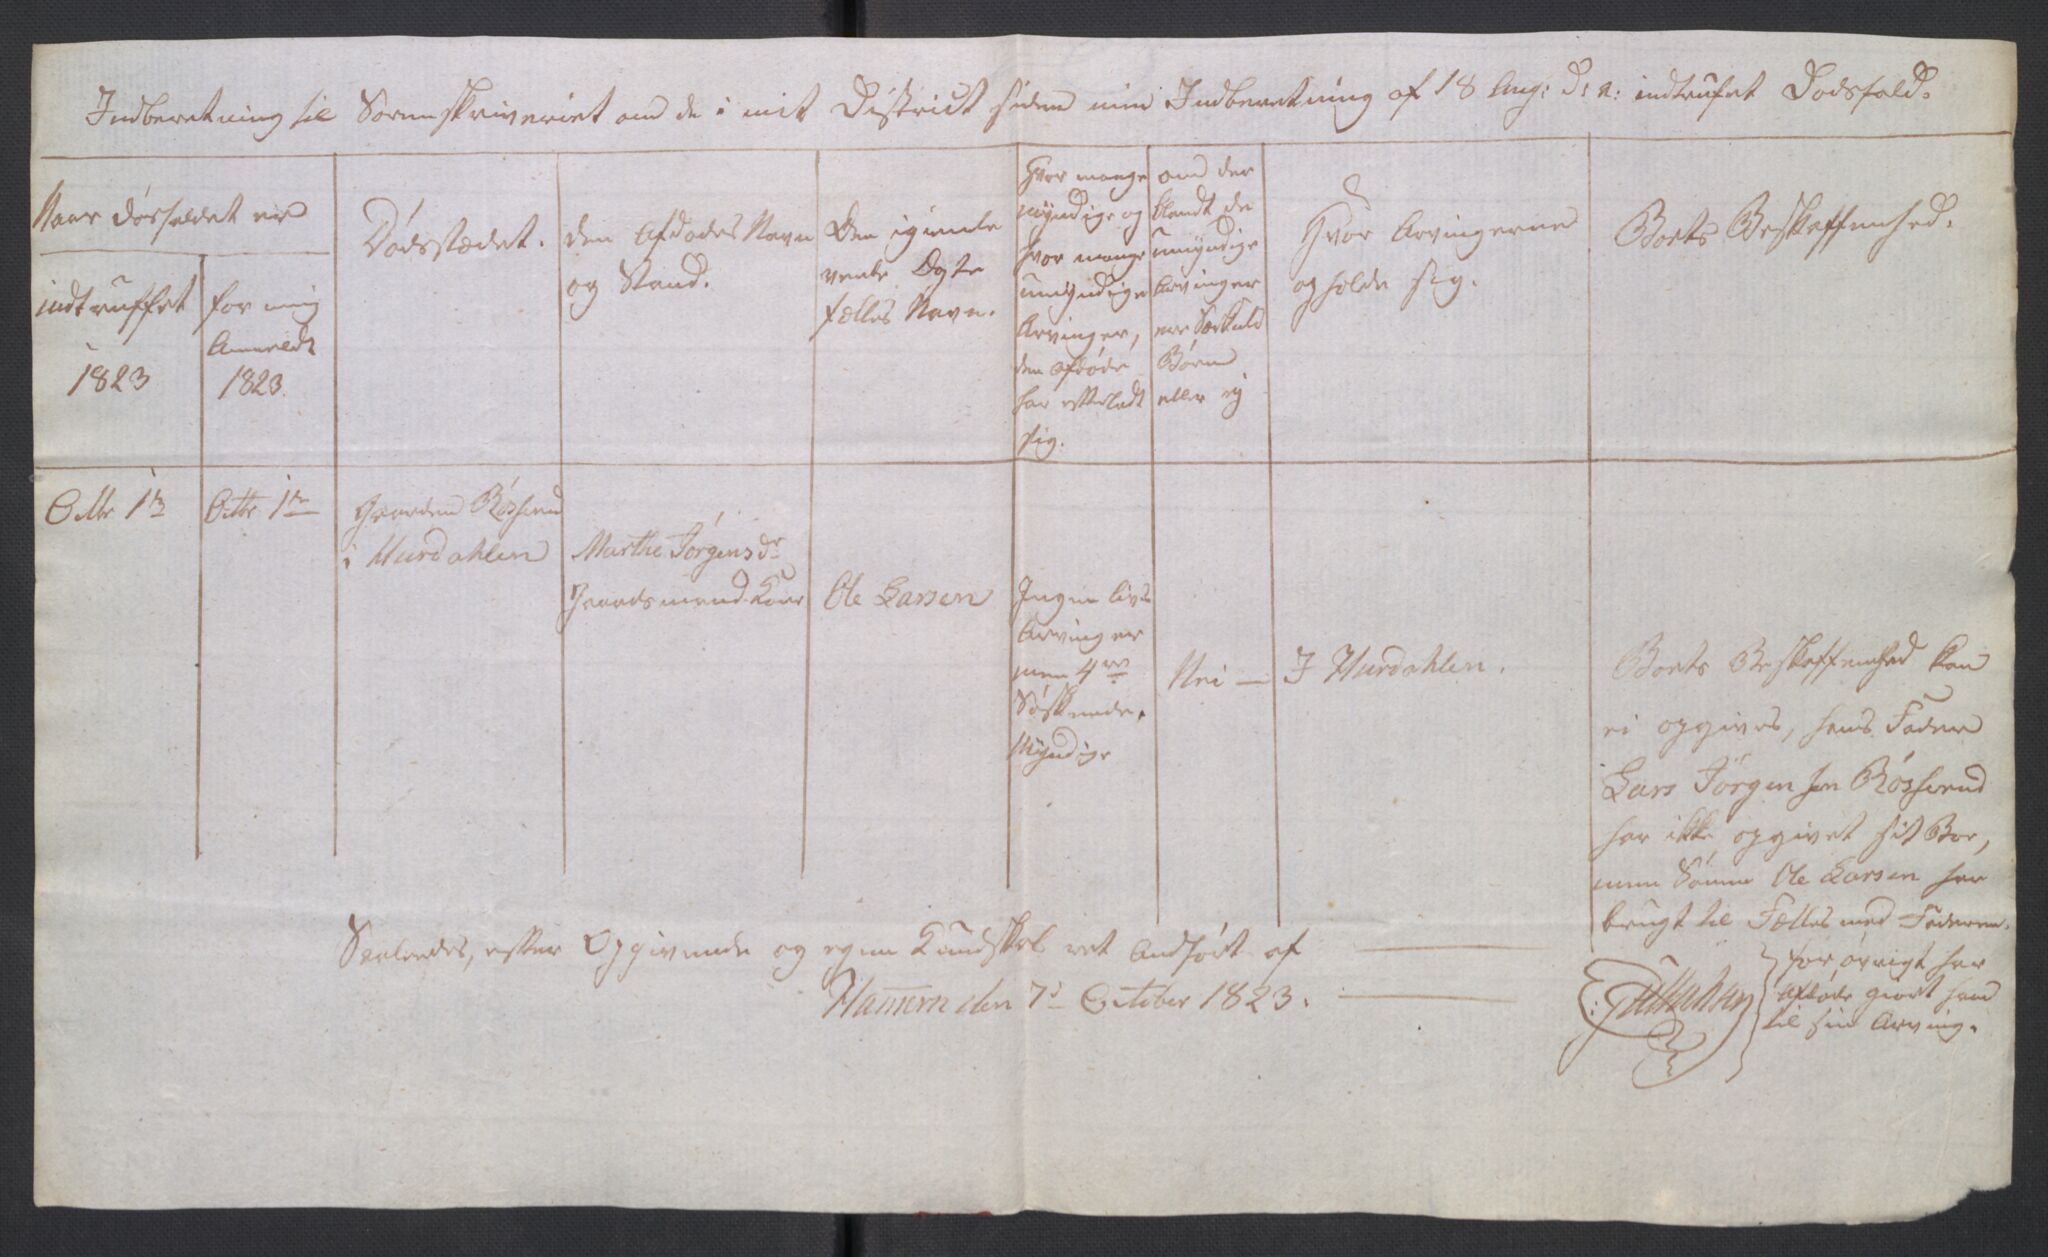 Indberetning til Sorenskriveriet om de i mit District siden min Indberetning af 18 Aug: d: A: indtrufet Dødsfald.
Naar dødsfaldet er
indtruffet
1823
for mig
Anmeldt
1823.
Dødsstædet.
den Afdødes Navn
og Stand.
Den igienle
vende Ægte
fælles Navn.
Hvor mange
myndige og
hvor mange
umyndige
Arvinger,
den afdøde
har efterladt
sig.
om der
blandt de
umyndige
Arvinger
ere Særkuld
Børn
eller ej
Hvor Arvingerne
opholde sig.
Boets Beskaffenhed.
Octbr 1te
Octbr 1te
Gaarden Røsherud
i Hurdahlen
Marthe Jørgensdr
Gaardmand Kone
Ole Larsen
Ingen livs
Arvinger
men 4re
Sødskende.
Myndige
Nei —
I Hurdahlen.
Boets Beskaffenhed kan
ei opgives, hans Fader
Lars Jørgensen Røsherud
har ikke opgivet sit Boe,
men Sønnen Ole Larsen har
brugt til Fælles med Faderen.
for øvrigt har
Afdøde giort ham
til sin Arving.
Saaledes, efter Opgivende og egen Kundskab ret Anført af
Hammeren den 7de October 1823.